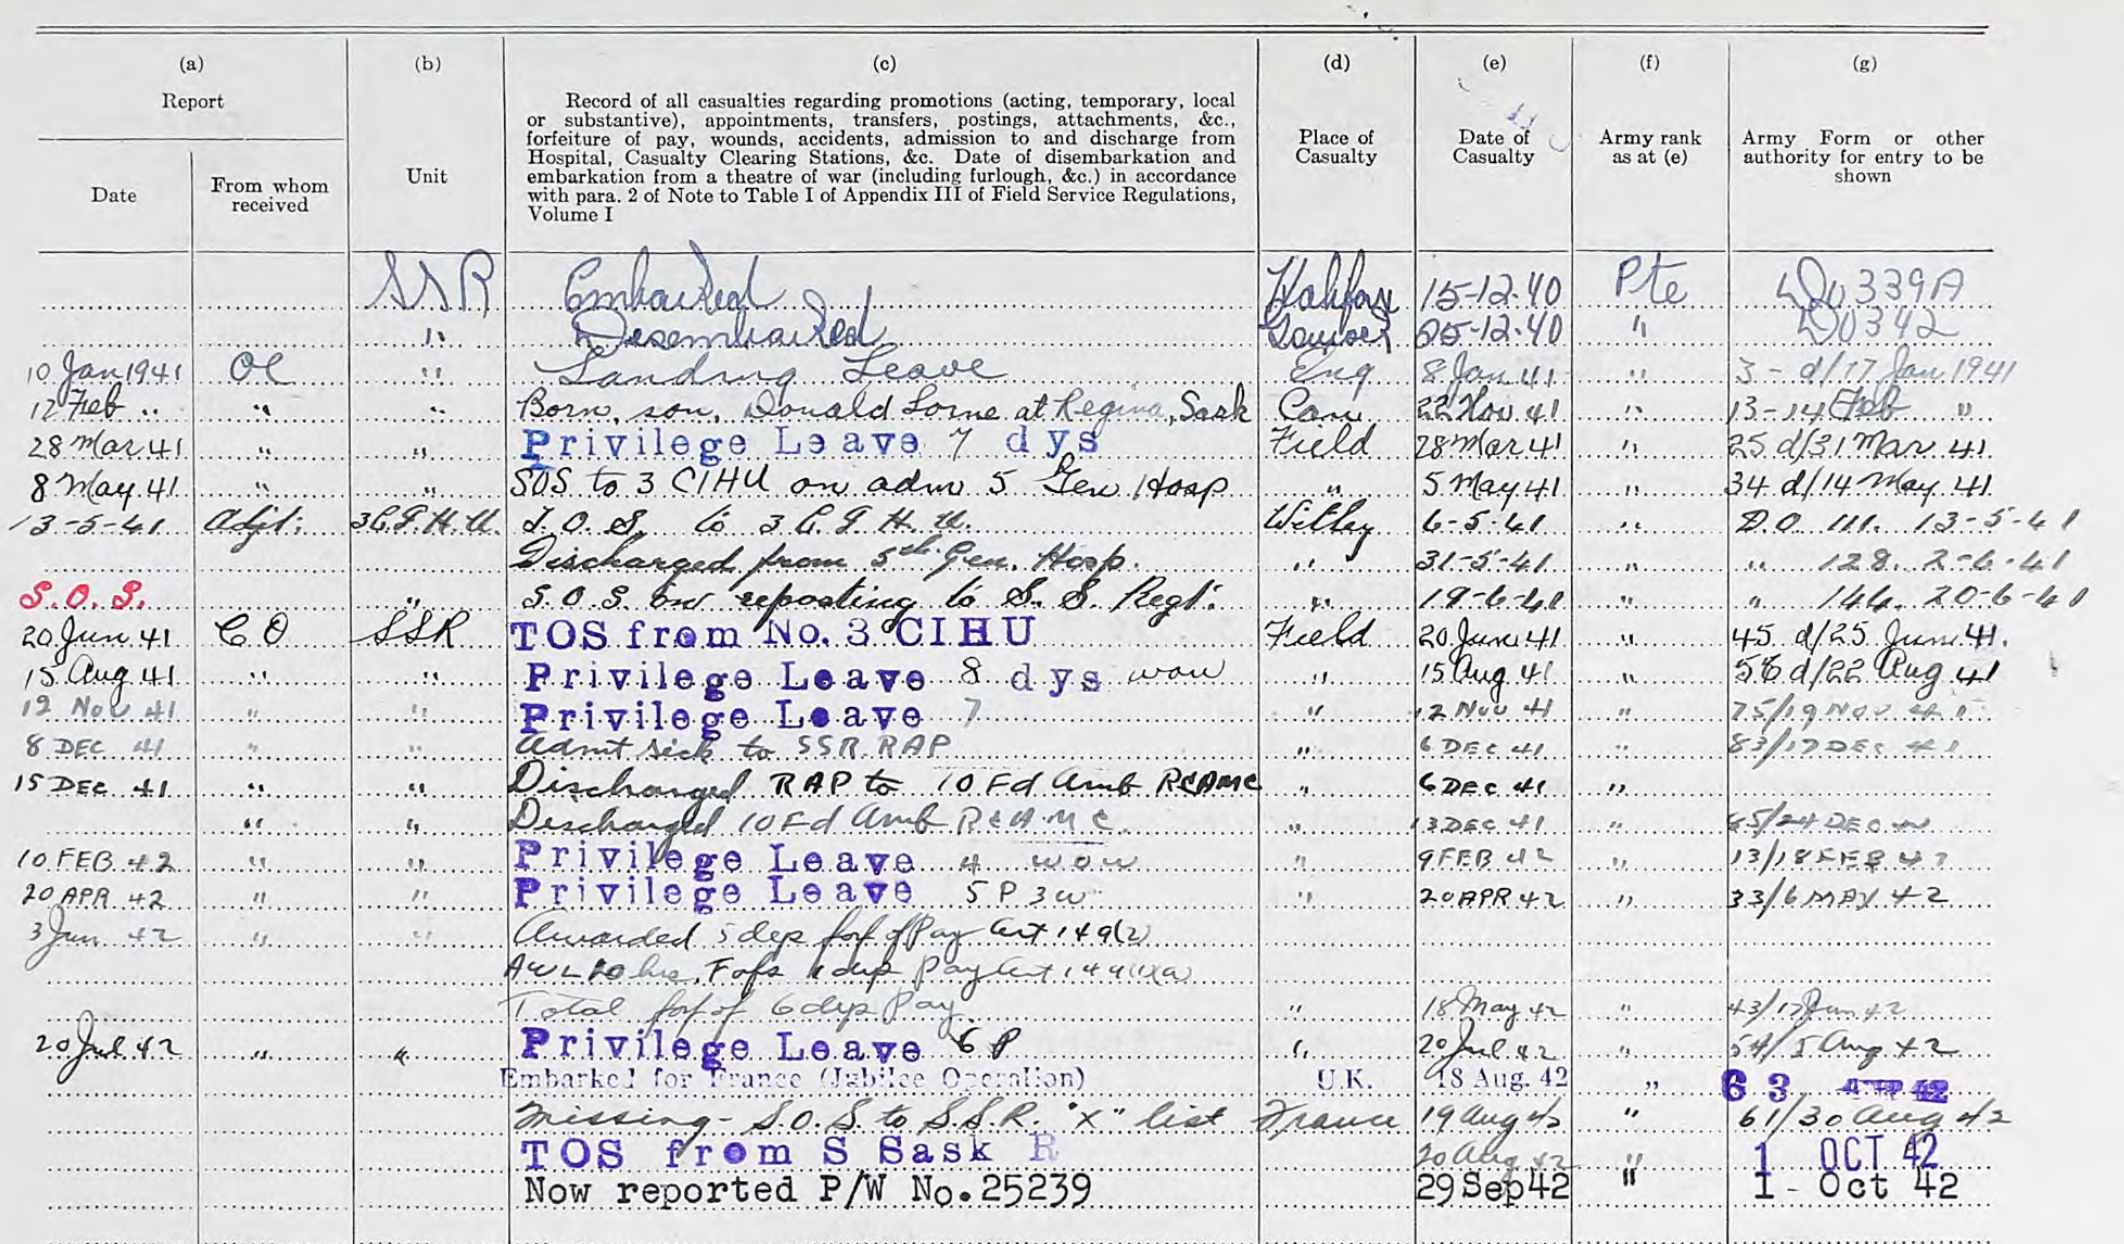 (a) (b) (c) (d) (e) (f) (g)
Report
Date
From whom
received
Unit
Record of all casualties regarding promotions (acting, temporary, local
or substantive), appointments, transfers, postings, attachments, &c.,
forfeiture of pay, wounds, accidents, admission to and discharge from
Hospital, Casualty Clearing Stations, &c. Date of disembarkation and
embarkation from a theatre of war (including furlough, &c.) in accordance
with para. 2 of Note to Table I of Appendix III of Field Service Regulations,
Volume I
Place of
Casualty
Date of
Casualty
Army rank
as at (e)
Army Form or other
authority for entry to be
shown
SSR Embarked Halifax 15-12-40 Pte DO 339A
" Disembarked 25-12-40 " DO 342
10 Jan 1941 OC " Landing Leave Eng 8 Jan 41 " 3 - d/17 Jan 1941
12 Feb " " " Born, son, Donald Lorne at Regina, Sask Can 22 Nov 41 " 13-14 Feb "
28 Mar 41 " " Privilege Leave 7 dys Field 28 Mar 41 " 25 d/31 Mar 41
8 May 41 " " SOS to 3 CIHU on adm 5 Gen Hosp " 5 May 41 " 34 d/14 May 41
13-5-41 Adjt: 3C.I.H.U. T.O.S. to 3 C.I.H.U. Witley 6-5-41 " D.O. 111. 13-5-41
Discharged from 5th Gen. Hosp. " 31-5-41 " " 128. 2-6-41
S.O.S. " S.O.S. on reporting to S.S. Regt. " 19-6-41 " " 144. 20-6-41
20 Jun 41 CO SSR TOS from No. 3 CIHU Field 20 June 41 " 45 d/25 June 41.
15 Aug 41 " " Privilege Leave 8 dys wow " 15 Aug 41 " 56 d/22 Aug 41
12 Nov 41 " " Privilege Leave 7 " 12 Nov 41 " 75/19 Nov 41
8 DEC 41 " " Admt sick to SSR RAP " 6 DEC 41 " 83/17 DEC 41
15 DEC 41 " " Discharged RAP to 10 Fd Amb RCAMC " 6 DEC 41 "
" " Discharged 10 Fd Amb RCAMC " 13 DEC 41 " 85/24 DEC
10 FEB 42 " " Privilege Leave 4 wow " 9 FEB 42 " 13/18 FEB 42
20 APR 42 " " Privilege Leave 5 P 3 W " 20 APR 42 " 33/6 MAY 42
3 Jun 42 " " Awarded 5 dys forf of Pay Art 149(2)
AWL 10 hrs. Forfs 1 dys Pay Art 149(1)(a)
Total forf of 6 dys Pay. " 18 May 42 " 43/17 Jun 42
20 Jul 42 " " Privilege Leave 6 P " 20 Jul 42 " 54/5 Aug 42
Embarked for France (Jubilee Operation) U.K. 18 Aug. 42 " 63
Missing - S.O.S to S.S.R. "X" list France 19 Aug 42 " 61/30 Aug 42
TOS from S Sask R 20 Aug 42 " 1 OCT 42
Now reported P/W No. 25239 29 Sep 42 " 1 - Oct 42